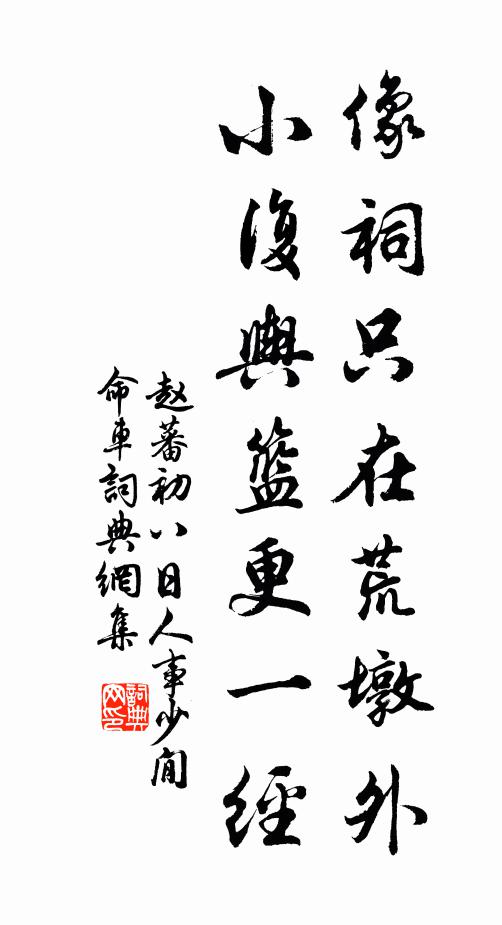 像祠只在荒墩外
小復輿籃更一經
赵蕃初八日人事少閒
命車詞典網集
詞典网印